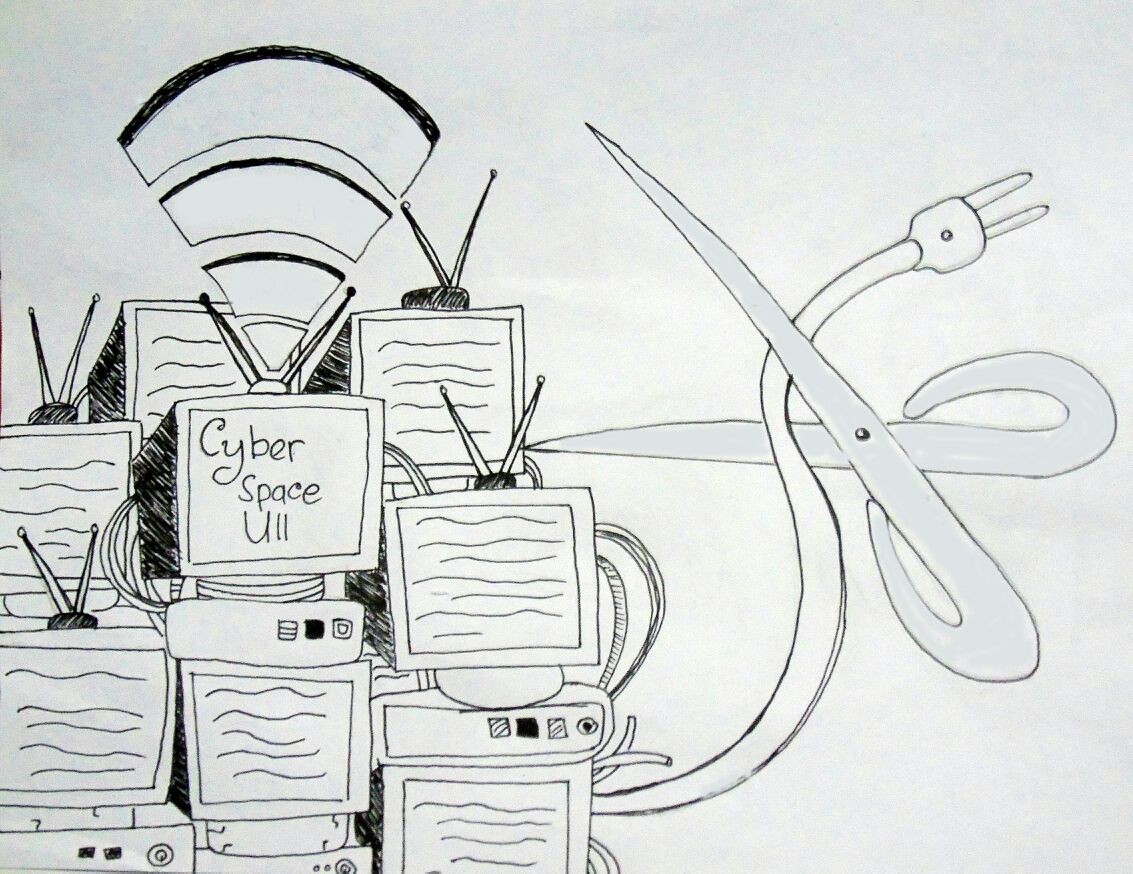 Cyber
Space
Ull